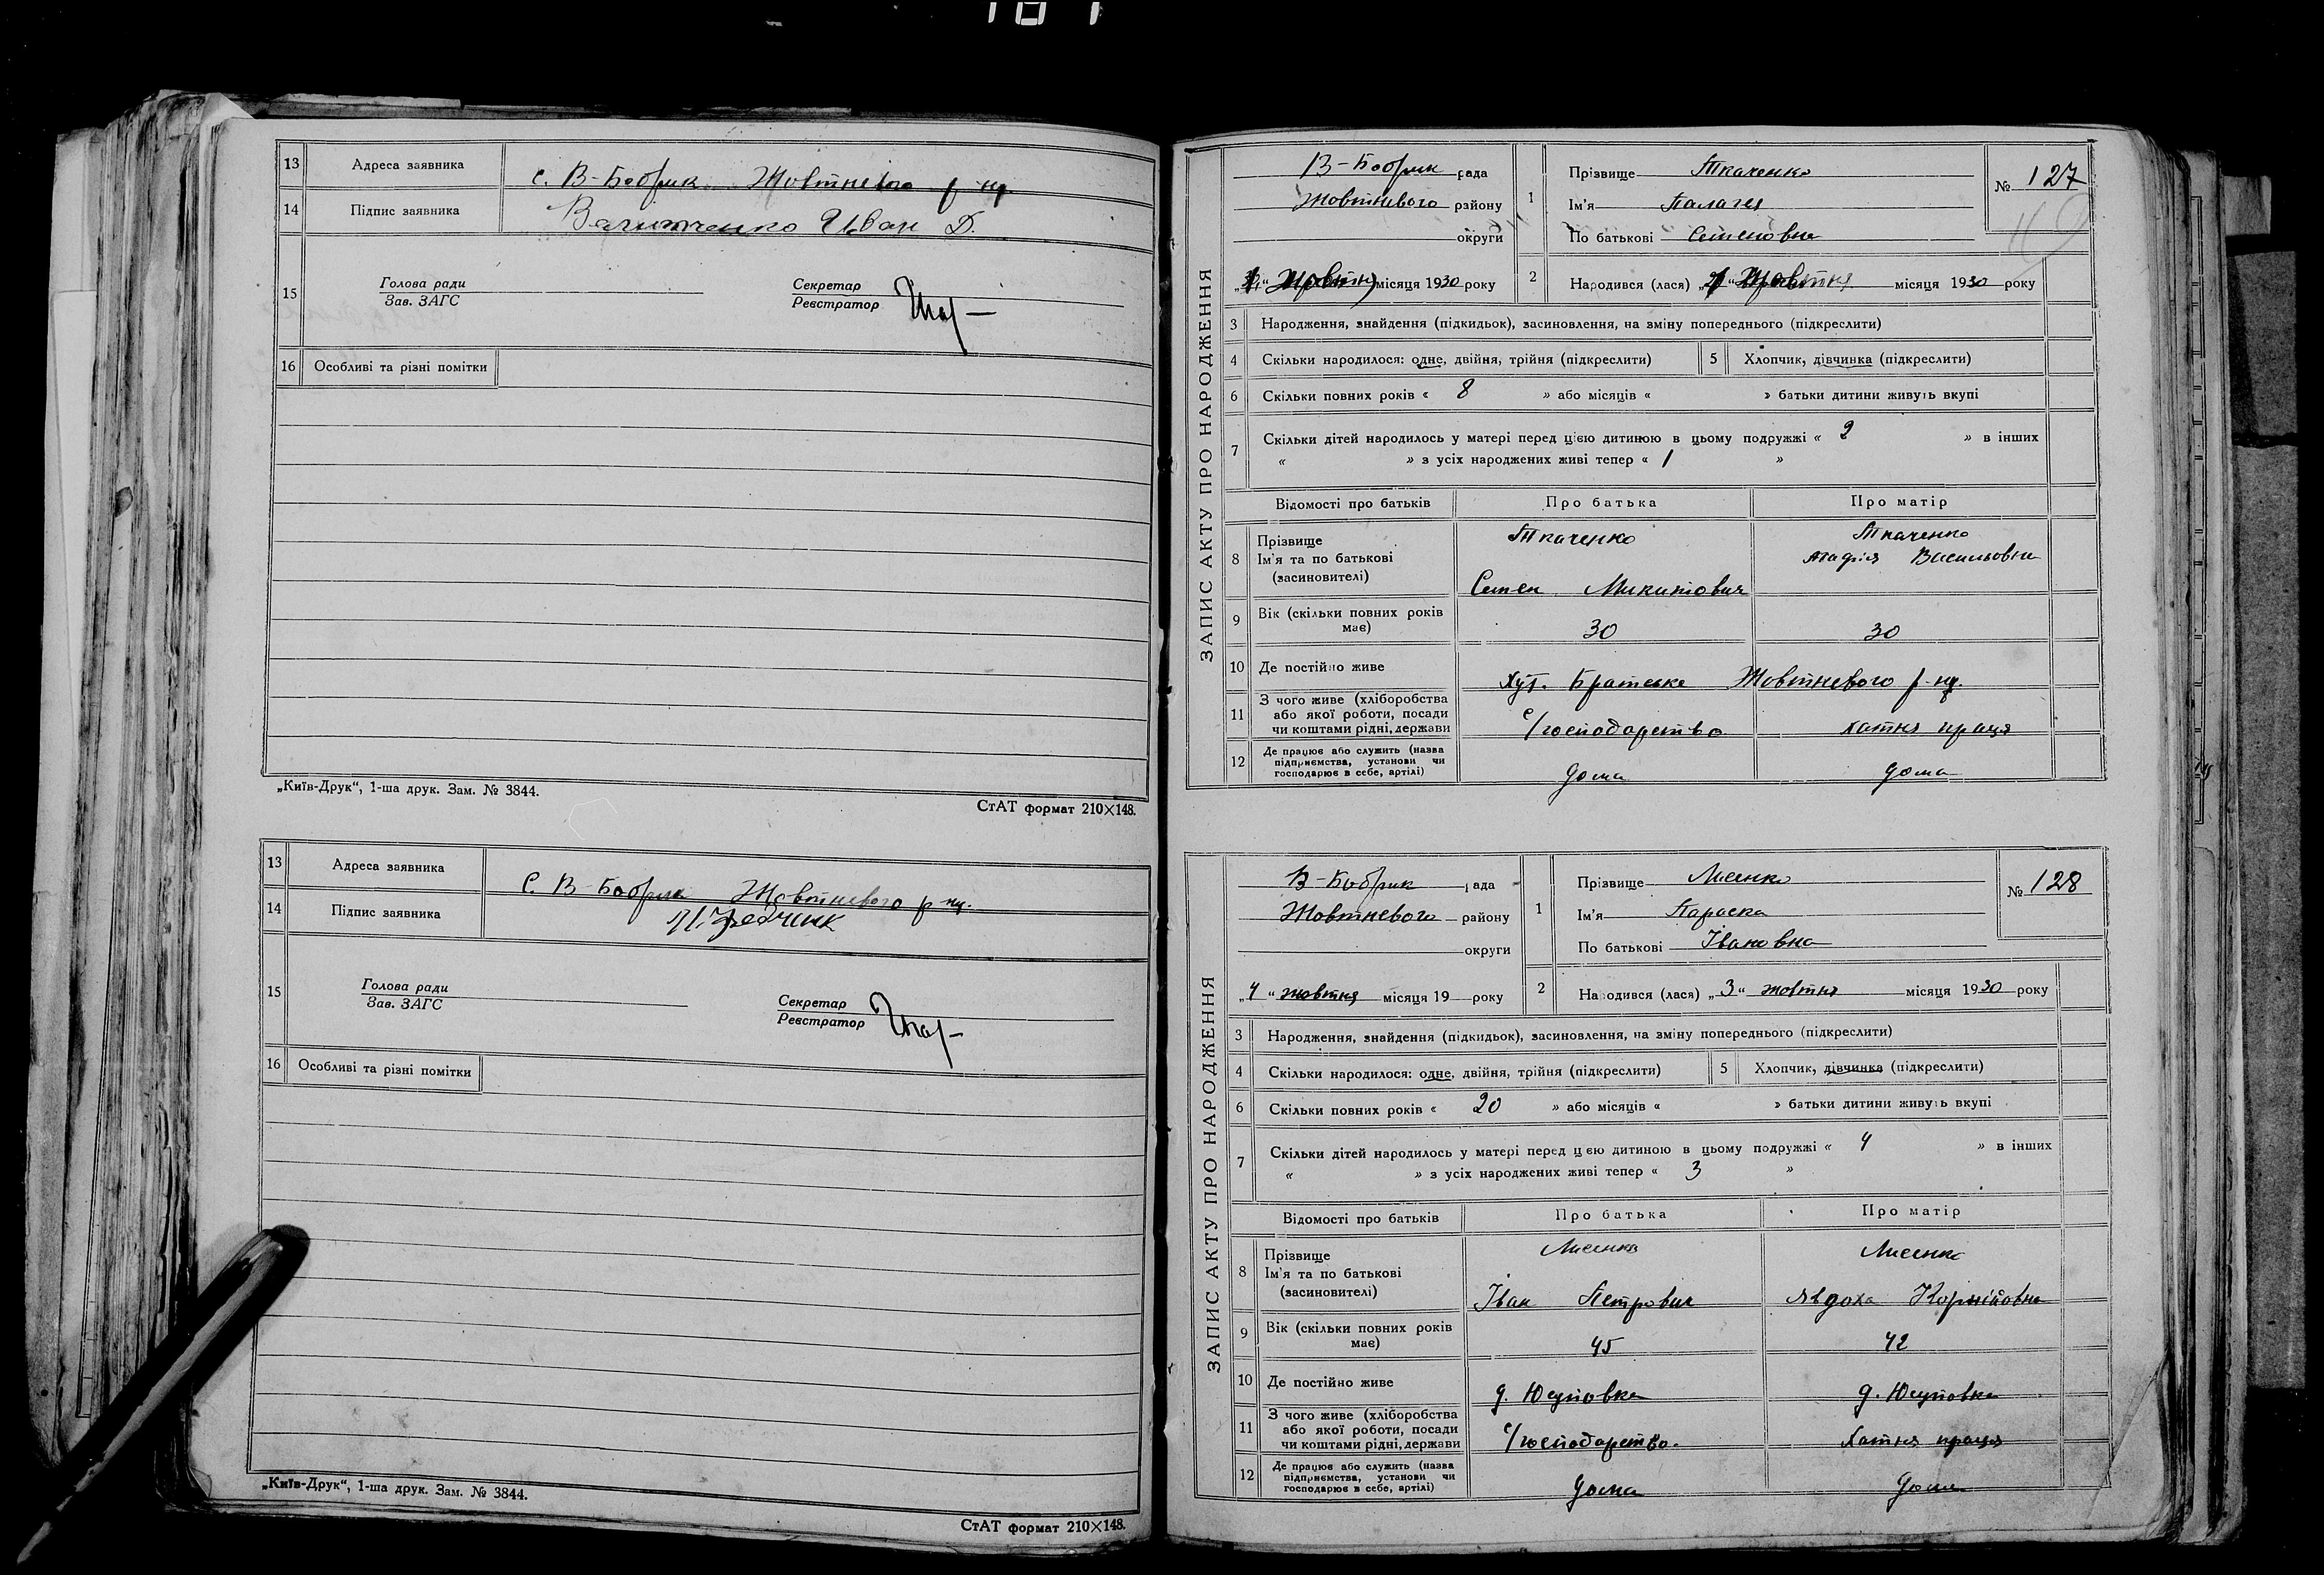 13 Адреса заявника с. В-Бобрик Жовтневого р-ну.
14 Підпис заявника Иван Д.
15 Голова ради Секретар
Зав. ЗАГС Реєстратор
16 Особливі та різні помітки
„Київ-Друк“, 1-ша друк. Зам. № 3844.
СтАТ формат 210×148.
13 Адреса заявника С. В-Бобрик Жовтневого р-ну.
14 Підпис заявника
15 Голова ради Секретар
Зав. ЗАГС Реєстратор
16 Особливі та різні помітки
„Київ-Друк“, 1-ша друк. Зам. № 3844.
СтАТ формат 210×148.
ЗАПИС АКТУ ПРО НАРОДЖЕННЯ
В-Бобрик рада
Жовтневого району
округи
„ “ Жовтня місяця 1930 року
1 Прізвище Ткаченко
Ім'я Палагея
По батькові Семеновна
№ 127
2 Народився (лася) „ “ Жовтня місяця 1930 року
3 Народження, знайдення (підкидьок), засиновлення, на зміну попереднього (підкреслити)
4 Скільки народилося: одне, двійня, трійня (підкреслити) 5 Хлопчик, дівчинка (підкреслити)
6 Скільки повних років « 8 » або місяців « » батьки дитини живуть вкупі
7 Скільки дітей народилось у матері перед цією дитиною в цьому подружжі « 2 » в інших
« » з усіх народжених живі тепер « 1 »
Відомості про батьків Про батька Про матір
8 Прізвище Ткаченко Ткаченко
Ім'я та по батькові Агафія Васильовна
(засиновителі) Семен Микитович
9 Вік (скільки повних років має) 30 30
10 Де постійно живе Хут. Братське Жовтневого р-ну.
11 З чого живе (хліборобства
або якої роботи, посади с/господарство хатня праця
чи коштами рідні, держави
12 Де працює або служить (назва
підприємства, установи чи
господарює в себе, артілі) дома дома
ЗАПИС АКТУ ПРО НАРОДЖЕННЯ
В-Бобрик рада
Жовтневого району
округи
„4“ жовтня місяця 19 року
1 Прізвище Лисенко
Ім'я Параска
По батькові Івановна
№ 128
2 Народився (лася) „3“ жовтня місяця 1930 року
3 Народження, знайдення (підкидьок), засиновлення, на зміну попереднього (підкреслити)
4 Скільки народилося: одне, двійня, трійня (підкреслити) 5 Хлопчик, дівчинка (підкреслити)
6 Скільки повних років « 20 » або місяців « » батьки дитини живуть вкупі
7 Скільки дітей народилось у матері перед цією дитиною в цьому подружжі « 4 » в інших
« » з усіх народжених живі тепер « 3 »
Відомості про батьків Про батька Про матір
8 Прізвище Лисенко Лисенко
Ім'я та по батькові
(засиновителі) Іван Петрович Явдоха Корнійовна
9 Вік (скільки повних років має) 45 42
10 Де постійно живе д. Юсуповка д. Юсуповка
11 З чого живе (хліборобства
або якої роботи, посади
чи коштами рідні, держави с/господарство. хатня праця
12 Де працює або служить (назва
підприємства, установи чи
господарює в себе, артілі) дома дома